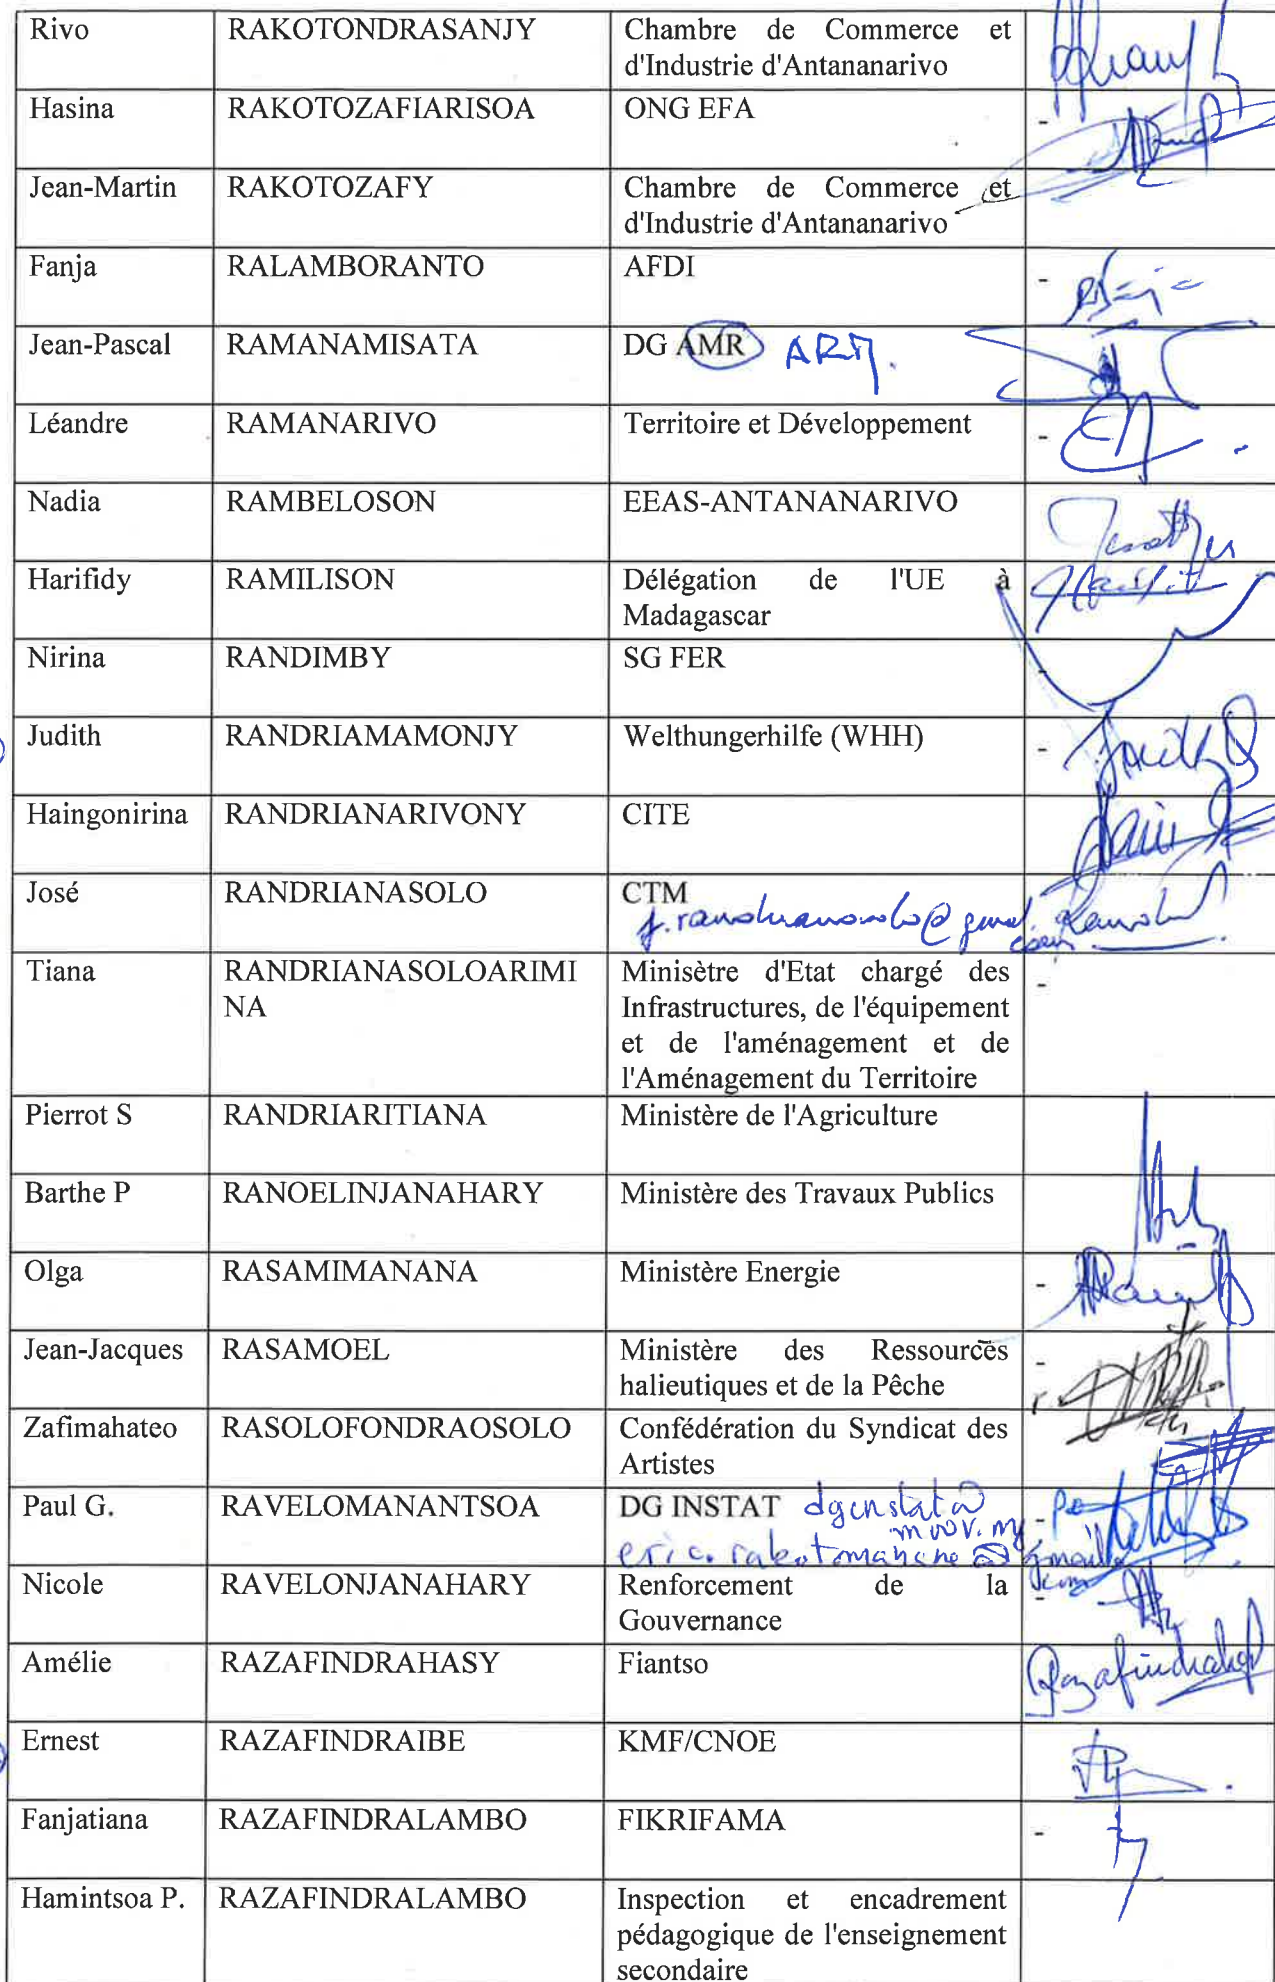 Rivo RAKOTONDRASANJY Chambre de Commerce et
d'Industrie d'Antananarivo
Hasina RAKOTOZAFIARISOA ONG EFA -
Jean-Martin RAKOTOZAFY Chambre de Commerce et
d'Industrie d'Antananarivo
Fanja RALAMBORANTO AFDI -
Jean-Pascal RAMANAMISATA DG AMR ARM.
Léandre RAMANARIVO Territoire et Développement -
Nadia RAMBELOSON EEAS-ANTANANARIVO
Harifidy RAMILISON Délégation de l'UE à
Madagascar
Nirina RANDIMBY SG FER -
Judith RANDRIAMAMONJY Welthungerhilfe (WHH) -
Haingonirina RANDRIANARIVONY CITE
José RANDRIANASOLO CTM
Tiana RANDRIANASOLOARIMI Minisètre d'Etat chargé des -
NA Infrastructures, de l'équipement
et de l'aménagement et de
l'Aménagement du Territoire
Pierrot S RANDRIARITIANA Ministère de l'Agriculture
Barthe P RANOELINJANAHARY Ministère des Travaux Publics
Olga RASAMIMANANA Ministère Energie -
Jean-Jacques RASAMOEL Ministère des Ressources -
halieutiques et de la Pêche
Zafimahateo RASOLOFONDRAOSOLO Confédération du Syndicat des
Artistes
Paul G. RAVELOMANANTSOA DG INSTAT -
Nicole RAVELONJANAHARY Renforcement de la -
Gouvernance
Amélie RAZAFINDRAHASY Fiantso
Ernest RAZAFINDRAIBE KMF/CNOE
Fanjatiana RAZAFINDRALAMBO FIKRIFAMA -
Hamintsoa P. RAZAFINDRALAMBO Inspection et encadrement
pédagogique de l'enseignement
secondaire